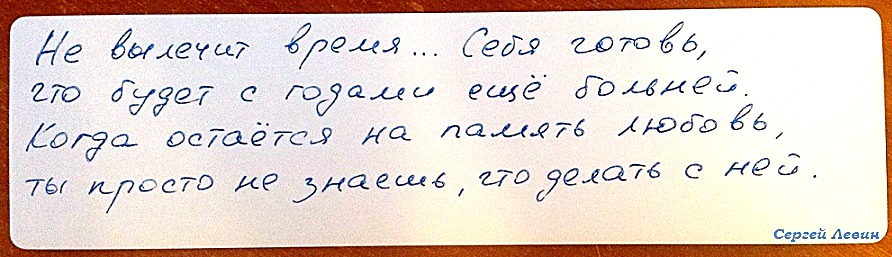 Не вылечит время... Себя готовь,
что будет с годами ещё больней.
Когда остаётся на память любовь,
ты просто не знаешь, что делать с ней.
Сергей Левин